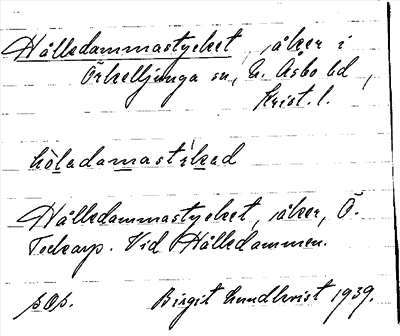 Hålledammastycket, åker i
Örkelljunga sn, N. Åsbo hd,
Krist. l.
hòladamastikad
Hålledammastycket, åker, Ö.
Torkarp. Vid Hålledammen.
Birgit Lundkvist 1939.